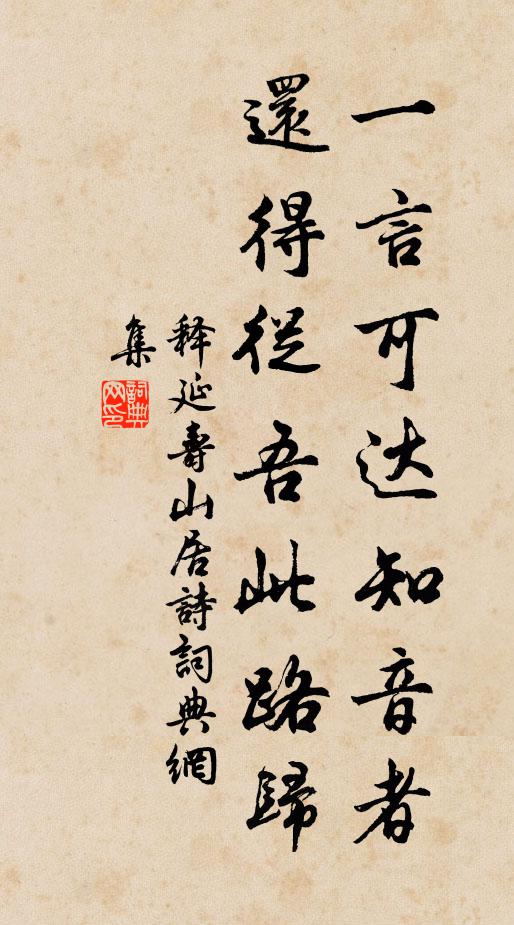 一言可达知音者
還得從吾此路歸
释延壽山居詩詞典網
集
詞典網印